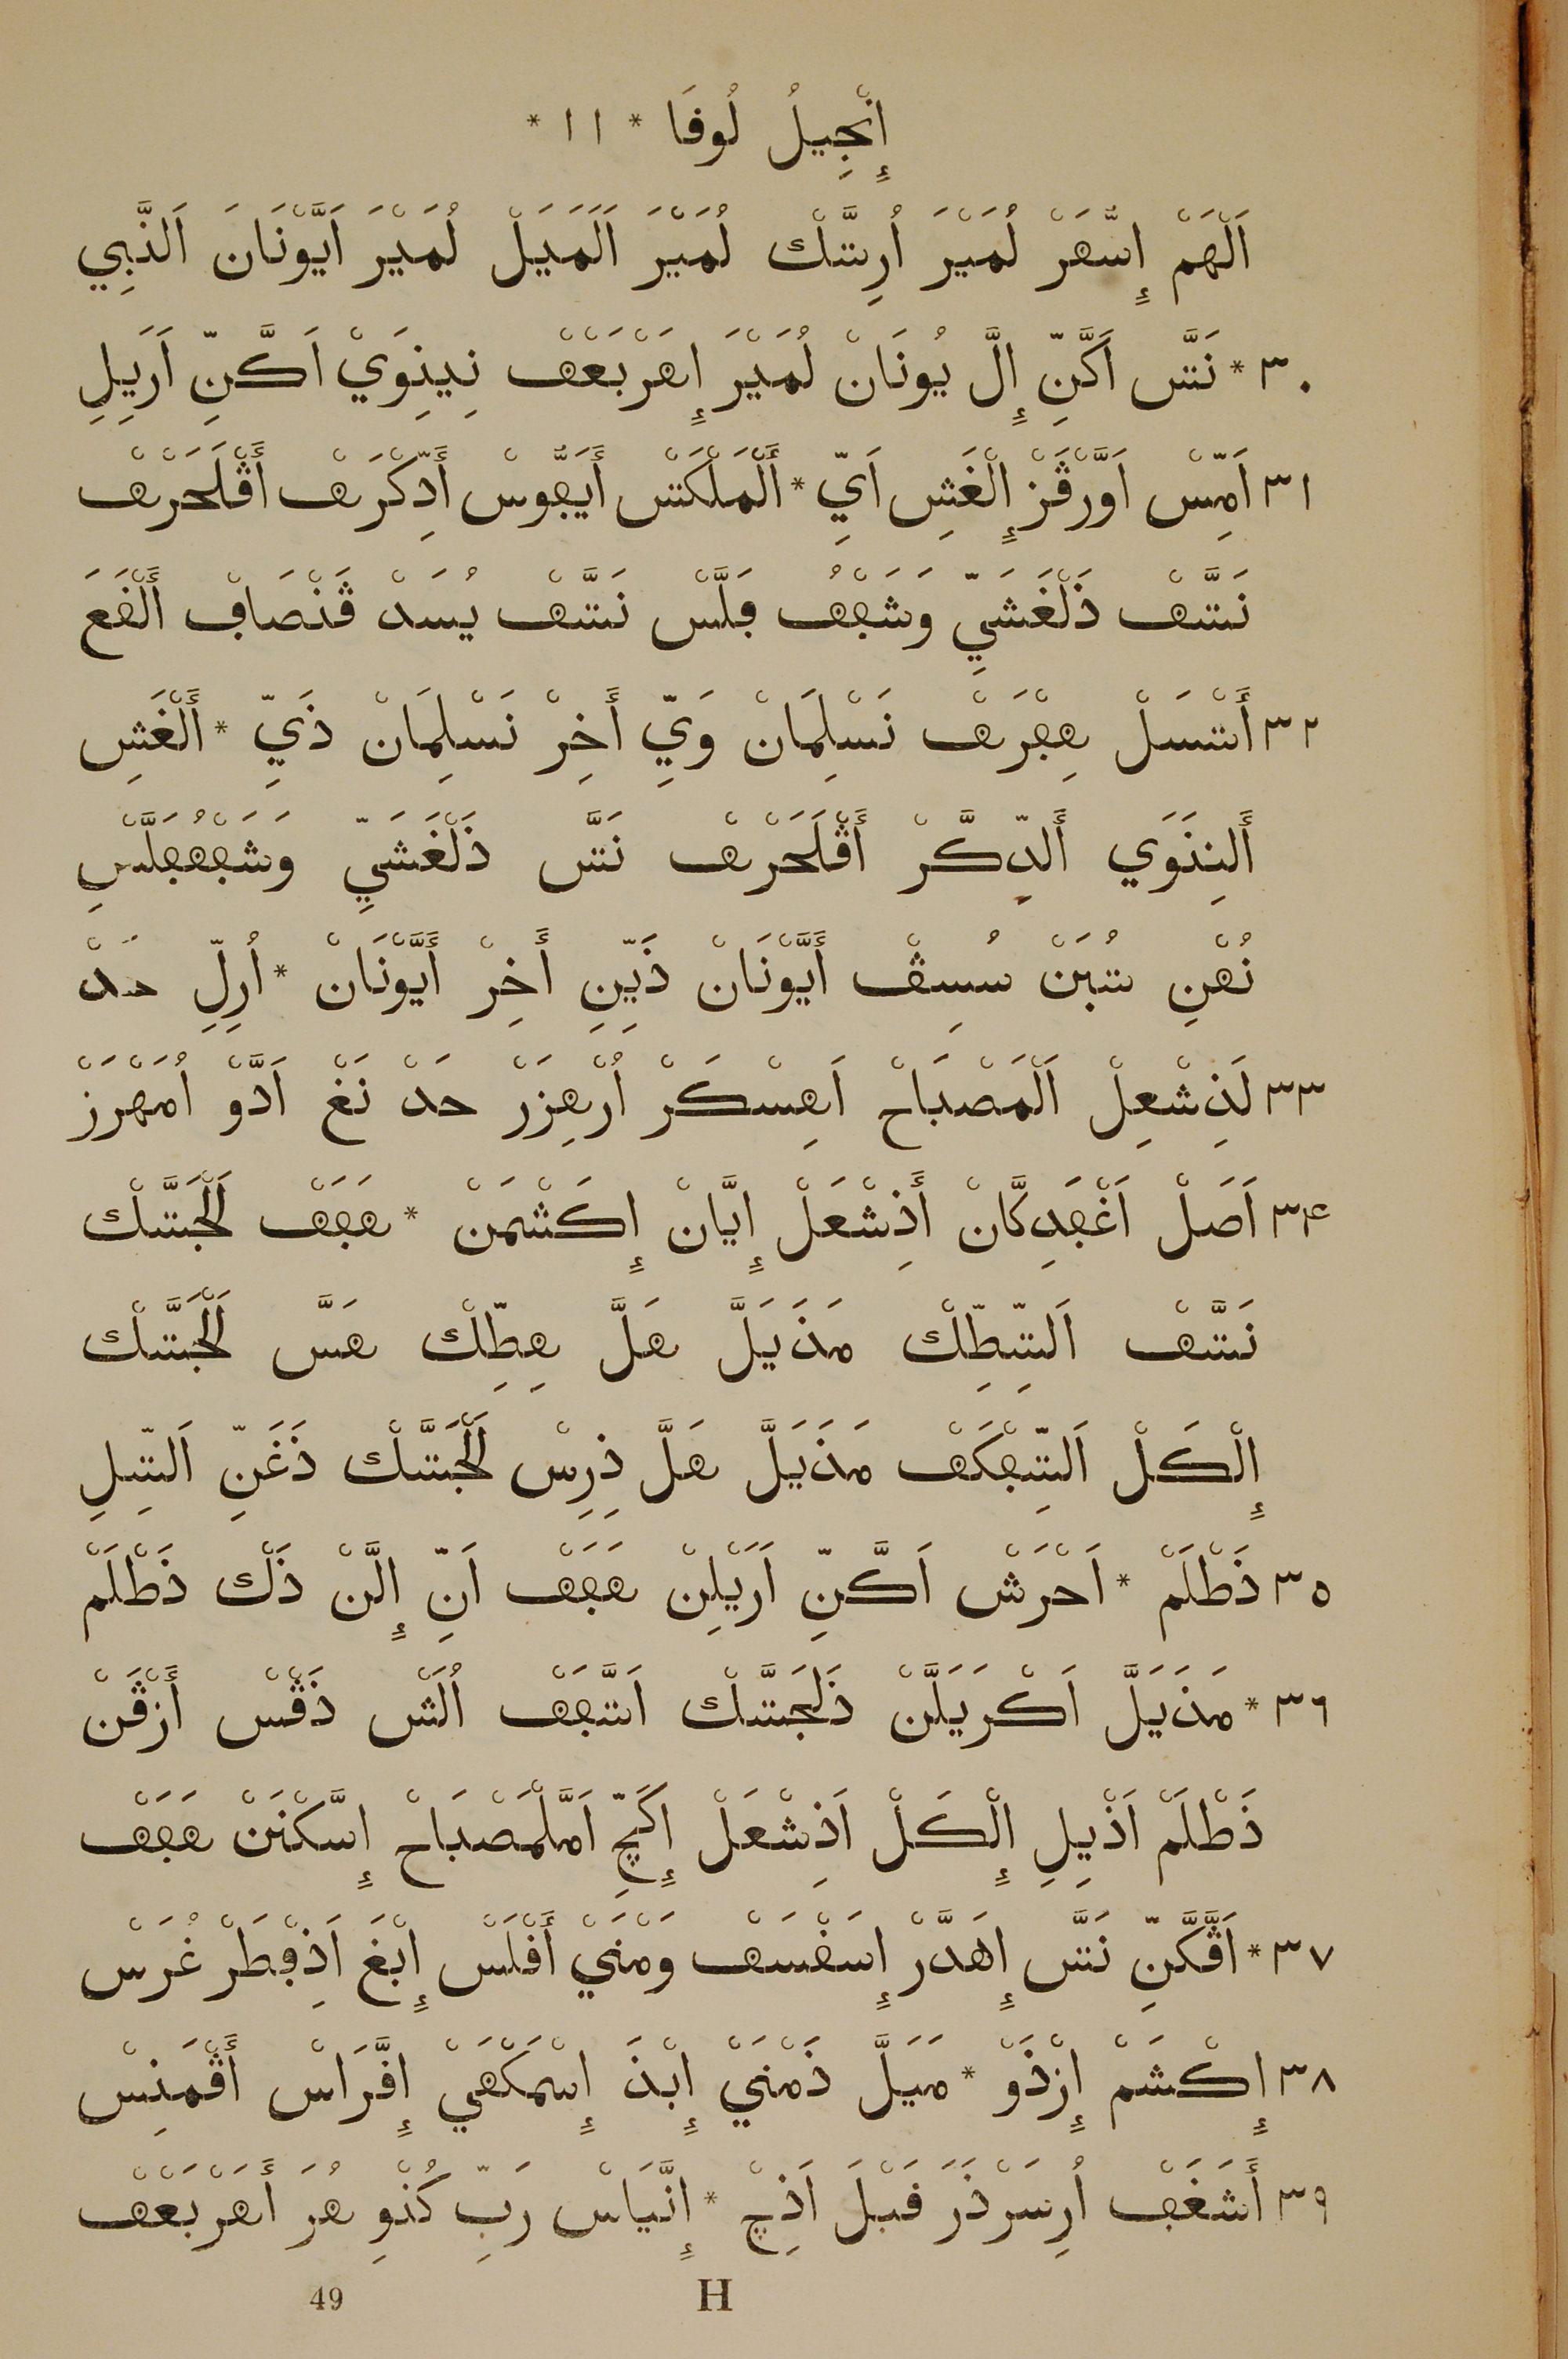 إِنْجِيلُ لُوقَا * ١١ *
اَلْهَمْ إِسَّهَرْ لُمَيْرَ اُرِتَّكْ لُمَيْرَ اَلَمَيَلْ لُمَيْرَ اَيَّوْنَانَ اَلنَّبِي
٣٠ * نَتَّى اَكَّنِّ إِلَّ يُونَانْ لُمَيْرَ إِهَرْبَعَهْ نِينِوَيْ اَكَّنِّ اَرَيِلِ
٣١ اَمِّسْ اَوَّرْڤَزْ إِلْغَشِ اَيِّ * أَلْمَلْكَتْ أَيَهُّوسْ أَدِّكْرَهْ أَڤْلَحَرْهْ
نَتَّهْ ذَلْغَشَيِّ وَشَبَهُ ڢَلَّسْ نَتَّهْ يُسَدْ ڤَنْصَافْ اَلْڢَعَ
٣٢ أَتْسَلْ هِبْرَهْ نَسْلِمَانْ وَيِّ أَخِرْ نَسْلِمَانْ ذَيِّ * أَلْغَشِ
أَلنِنَوَي أَلدِّكَّرْ أَڤْلَحَرْهْ نَتَّ ذَلْغَشَيِّ وَشَبَهْڢَلَّسِ
نُهْنِ تُبَنْ سُسِڤْ أَيَّوْنَانْ ذَيِّنِ أَخِرْ أَيَّوْنَانْ * اُرِلِّ حَدْ
٣٣ لَذِشْعِلْ اَلْمَصْبَاحْ اَهِسْكَرْ اُرْهِزَرْ حَدْ نَغْ اَدَّوْ اُمَهْرَزْ
٣٤ اَصَلْ اَغْڢَدِكَّانْ أَذِشْعَلْ إِيَّانْ إِكَشْمَنْ * هَڢَهْ لَلْجَتَّكْ
نَتَّهْ اَلتِّطِّكْ مَذَيَلَّ هَلَّ هِطِّكْ هَسَّ لَلْجَتَّكْ
إِلْكَلْ اَلتِّڢْكَهْ مَذَيَلَّ هَلَّ ذِرِسْ لَلْجَتَّكْ ذَغَنِّ اَلتِّلِ
٣٥ ذَطْلَمْ * اَحْرَشْ اَكَّنِّ اَرَيْلِنْ هَڢَهْ اَنِّ إِلَّنْ ذَكْ ذَطْلَمْ
٣٦ * مَذَيَلَّ اَكْرَيَلَّنْ ذَلْجَتَّكْ اَتَّڢَهْ اُلَشْ ذَڤْسْ أَزْڤَنْ
ذَطْلَمْ اَذْيِلِ إِلْكَلْ اَذِشْعَلْ إِكَچِّ اَمَّلْمَصْبَاحْ إِسَّكْنَنْ هَڢَهْ
٣٧ * اَڤَّكَّنِّ نَتَّ إِهَدَّرْ إِسَفْسَهْ وَمْنَيْ أَڤْلَسْ إِبْغَ اَذِڢْطَرْ غُرَسْ
٣٨ إِكْشَمْ إِزْذَوْ * مَيَلَّ ذَمْنَيْ إِبْذَ إِسْمَكْهَيْ إِڢَّرَاسْ أَڤْمَنِسْ
٣٩ أَشَغَڢْ اُرِسَرْذَرَ قَبْلَ اَذِچْ * إِنَّيَاسْ رَبِّ كُنْوِ هُرَ أَهَرْبَعَهْ
49 H